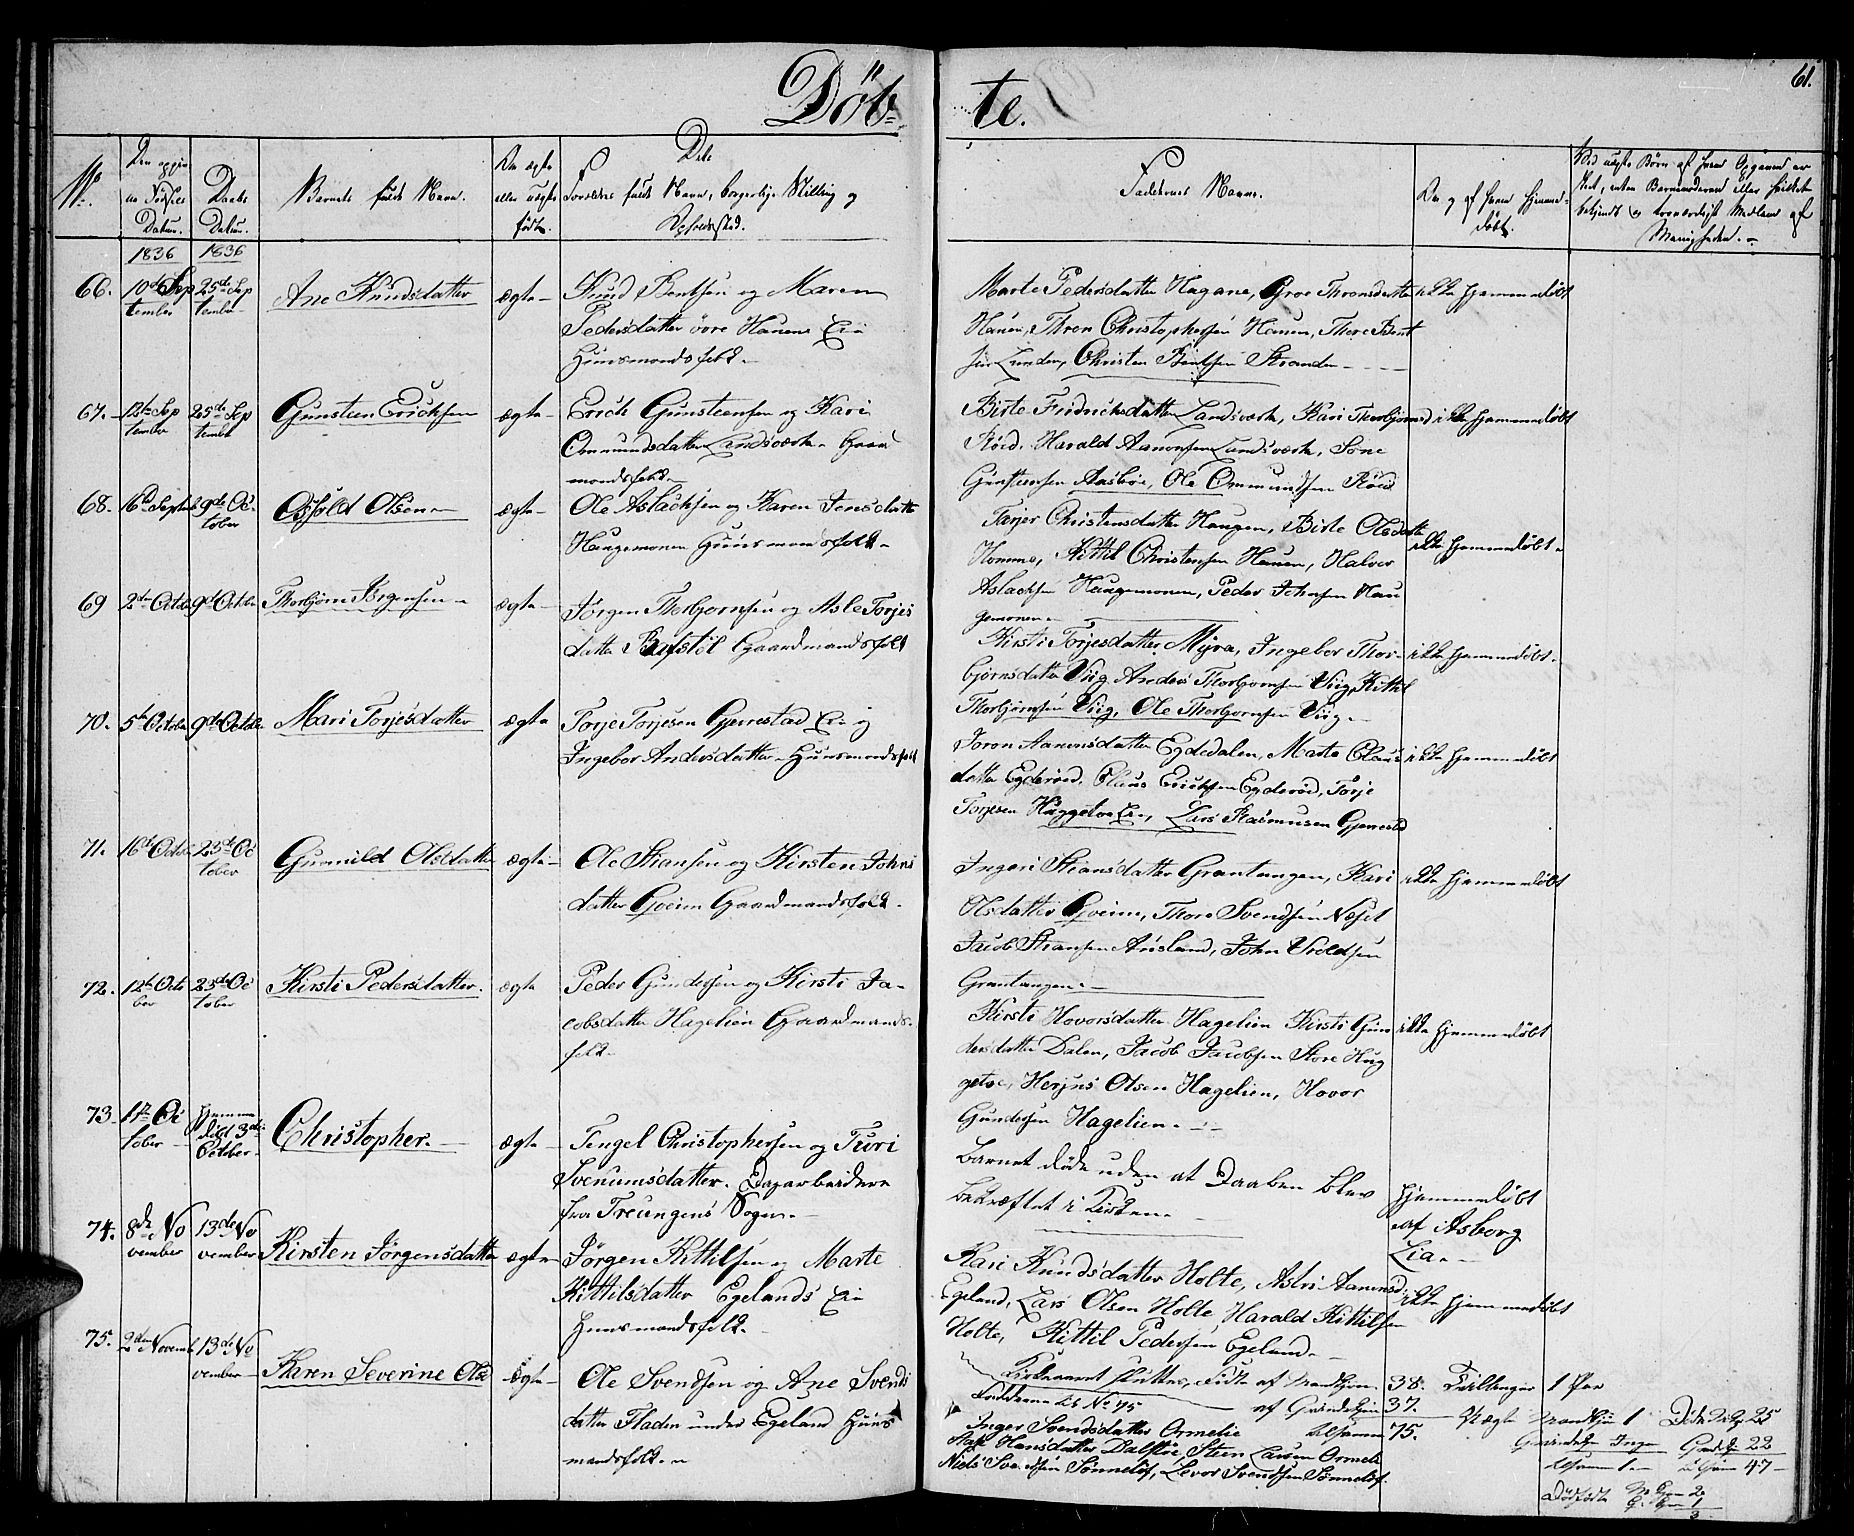 61.
Döb= te.
No.
Den opgivne Fødsels Datum.
Daabs Datum.
Barnets fulde Navn.
Om ægte eller uægte født.
Forældres fulde Navn, borgerlige Stilling og
Opholdssted.
Faddernes Navne.
Om og af hvem hjemme-
døbt.
1836 1836
66. 10de Sep 25de Sep
tember tember
Ane Knudsdatter
ægte
Knud Bentsen og Maren
Pedersdatter övre Hauens Eie
Huusmandsfolk
Marte Pedersdatter Hagane, Groe Thronsdatter
Hauen, Thron Christophersen Hauen, Thore Bent
sen Lunden, Christen Bentsen Stranden
ikke hjemmedøbt
67. 12te Sep 25de Sep
tember temb
Gunsteen Ericksen
ægte
Erich Gunsteensen og Kari
Ommundsdatter Landsværk Gaard
mandsfolk
Birte Fridrichsdatter Landsværk, Kari Thorbjørnsd
Röed, Harald Aanonsen Landsværk, Sone
Gunsteensen Aasböe, Ole Ommundsen Röed
ikke hjemmedøbt
68. 16de Septem 9de Oc
tober
Osfold Olsen
ægte
Ole Aslacksen og Karen Jensdatte
Haugemonen Huusmandsfolk
Tarjer Christensdatter Haugen, Birte Olsdatte
Homme, Kittil Christensen Hauen, Halvor
Aslacksen Haugemonen, Peder Johnsen Hau
gemonen
ikke hjemmedøbt
69 2den Octob 9de Octobe
Thorbjørn Jörgensen
ægte
Jörgen Thorbjornsen og Asle Torjes
datter Gaardmandsfolk
Kirsti Torjesdatter Myra, Ingebor Thor-
bjørnsdatter Viig, Anders Thorbjornsen Viig, Kittil
Thorbjørnsen Viig, Ole Thorbjornsen Viig
ikke hjemmedøbt
70. 5te October 9de Octobe
Mari Torjesdatter
ægte
Torje Torjesen Gjerrestad Eie og
Ingebor Andersdatter Huusmandsfolk
Joron Aanonsdatter Egdedalen, Marte Olaus
datter Egderöed, Olaus Ericksen Egderöd, Torje
Torjesen Huggetoe Eie, Lars Rasmusen Gjerrestd
ikke hjemmedøbt
71. 16de Octobe 23de Oc
tober
Gunnild Olsdatter
ægte
Ole Stiansen og Kirsten Johns
datter Gjeim Gaardmandsfolk
Ingeri Stiansdatter Grantangen, Kari
Olsdatter Gjeim, Thore Svendsen Næset
Jacob Stiansen Ausland, John
Grantangen
ikke hjemmedøbt
72. 12te Octo 23de Oc
ber tober
Kirsti Pedersdatter
ægte
Peder Gundersen og Kirsti Ja-
cobsdatter Hagelien Gaardmands-
folk
Kirsti Hovorsdatter Hagelien Kirsti Gun
dersdatter Dalen, Jacob Jacobsen Store Hug
getoe, Herjus Olsen Hagelien, Hovor
Gundersen Hagelien
ikke hjemmedøbt
73 1te Oc
tober
Hjemme
döbt 3die
October
Christopher.
ægte
Tengel Christophersen og Turi
Svenumsdatter. Dagarbeidere
fra Treungens Sogn.
Barnet døde uden at Daaben blev
bekræftet i Kirken.
hjemmedøbt
af Asborg
Lia
74. 8de No 13de No
vember vember
Kirsten Jörgensdatter
ægte
Jörgen Kittilsen og Marte
Kittilsdatter Egelands Eie
Huusmandsfolk
Kari Knudsdatter Holte, Astri Aanonsd
Egeland, Lars Olsen Holte, Harald Kittilsen
Holte, Kittil Pedersen Egeland
ikke hjemmedøbt
75. 2den Novemb 13de No
vember
Karen Severine Olsd
ægte
Ole Svendsen og Ane Svends
datter Fladen under Egeland Huus
mandsfolk
Kirkeaaret sluttes, Födte af Mandkjøn 38. Tvillinger 1 Par
Fadderne til No 75 af Qvindekjøn 37. Uægte Mandkjøn 1 Döde M. Kj. 25
Inger Svendsdatter Ormelie tilsammen 75. Qvindekj. Ingen Qvindekj. 22
Aase Hansdatter Dalstöe, Steen Larsen Ormeli tilsammen 1. tilsam 47
Niels Svendsen Sönnelöf, Levor Svendsen Sönnelöf
Dødfødte M. Kjøn 2
Q. Kjøn 1
3